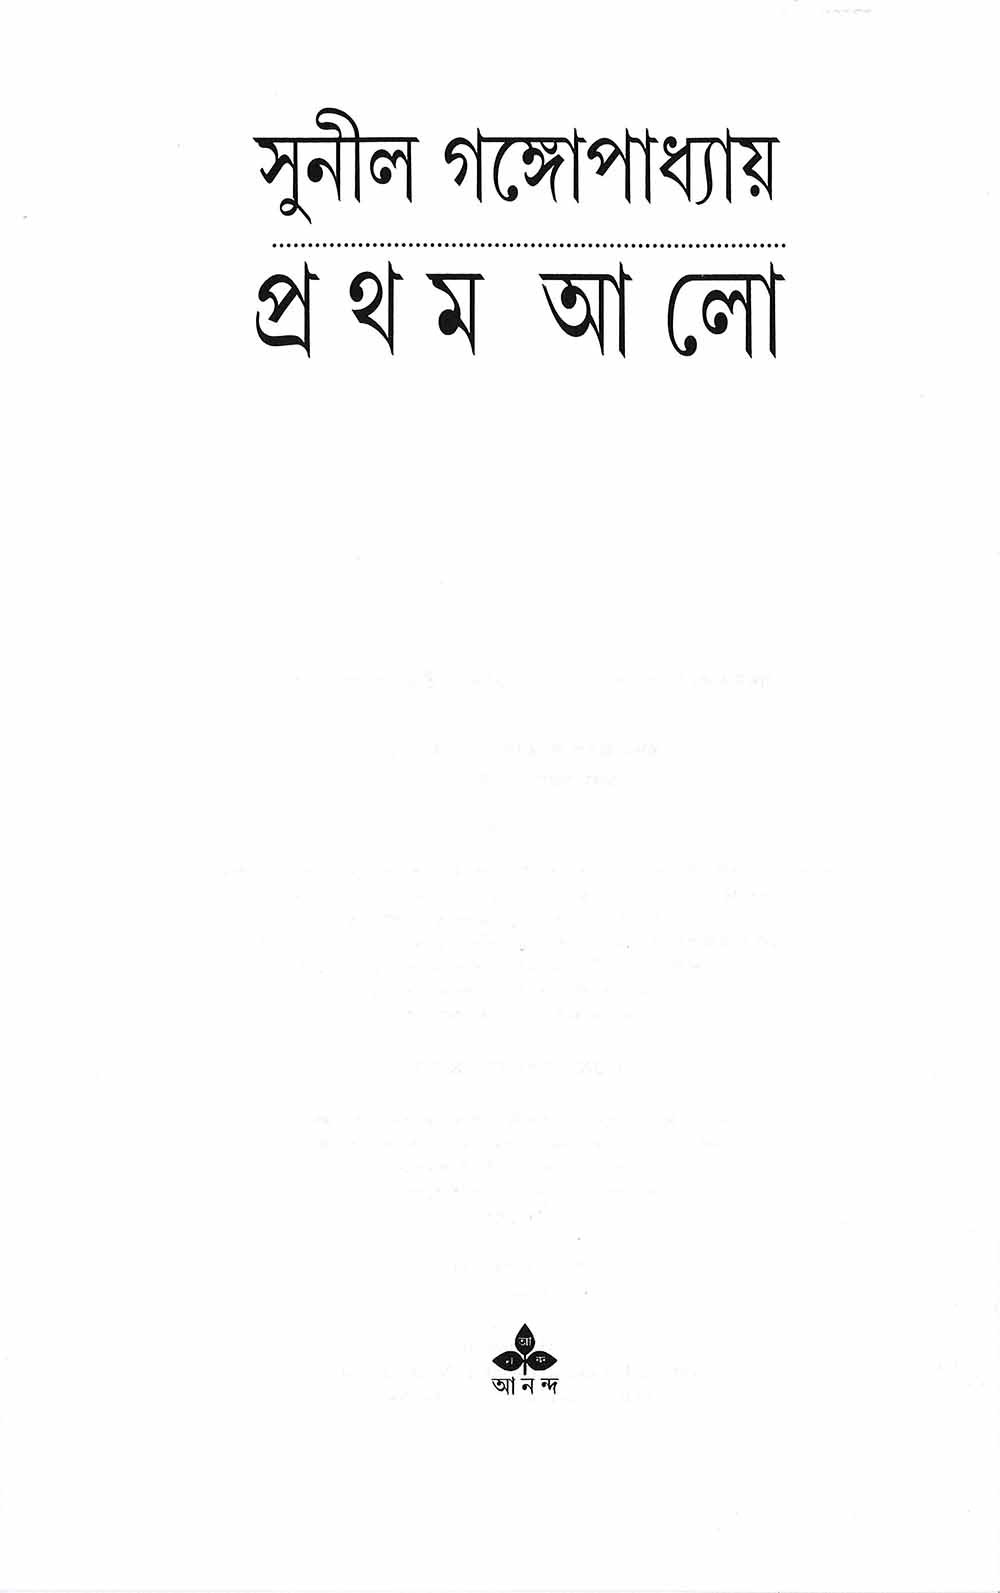 সুনীল গঙ্গোপাধ্যায়
প্রথম আলো
আ
ন ন্দ
আনন্দ